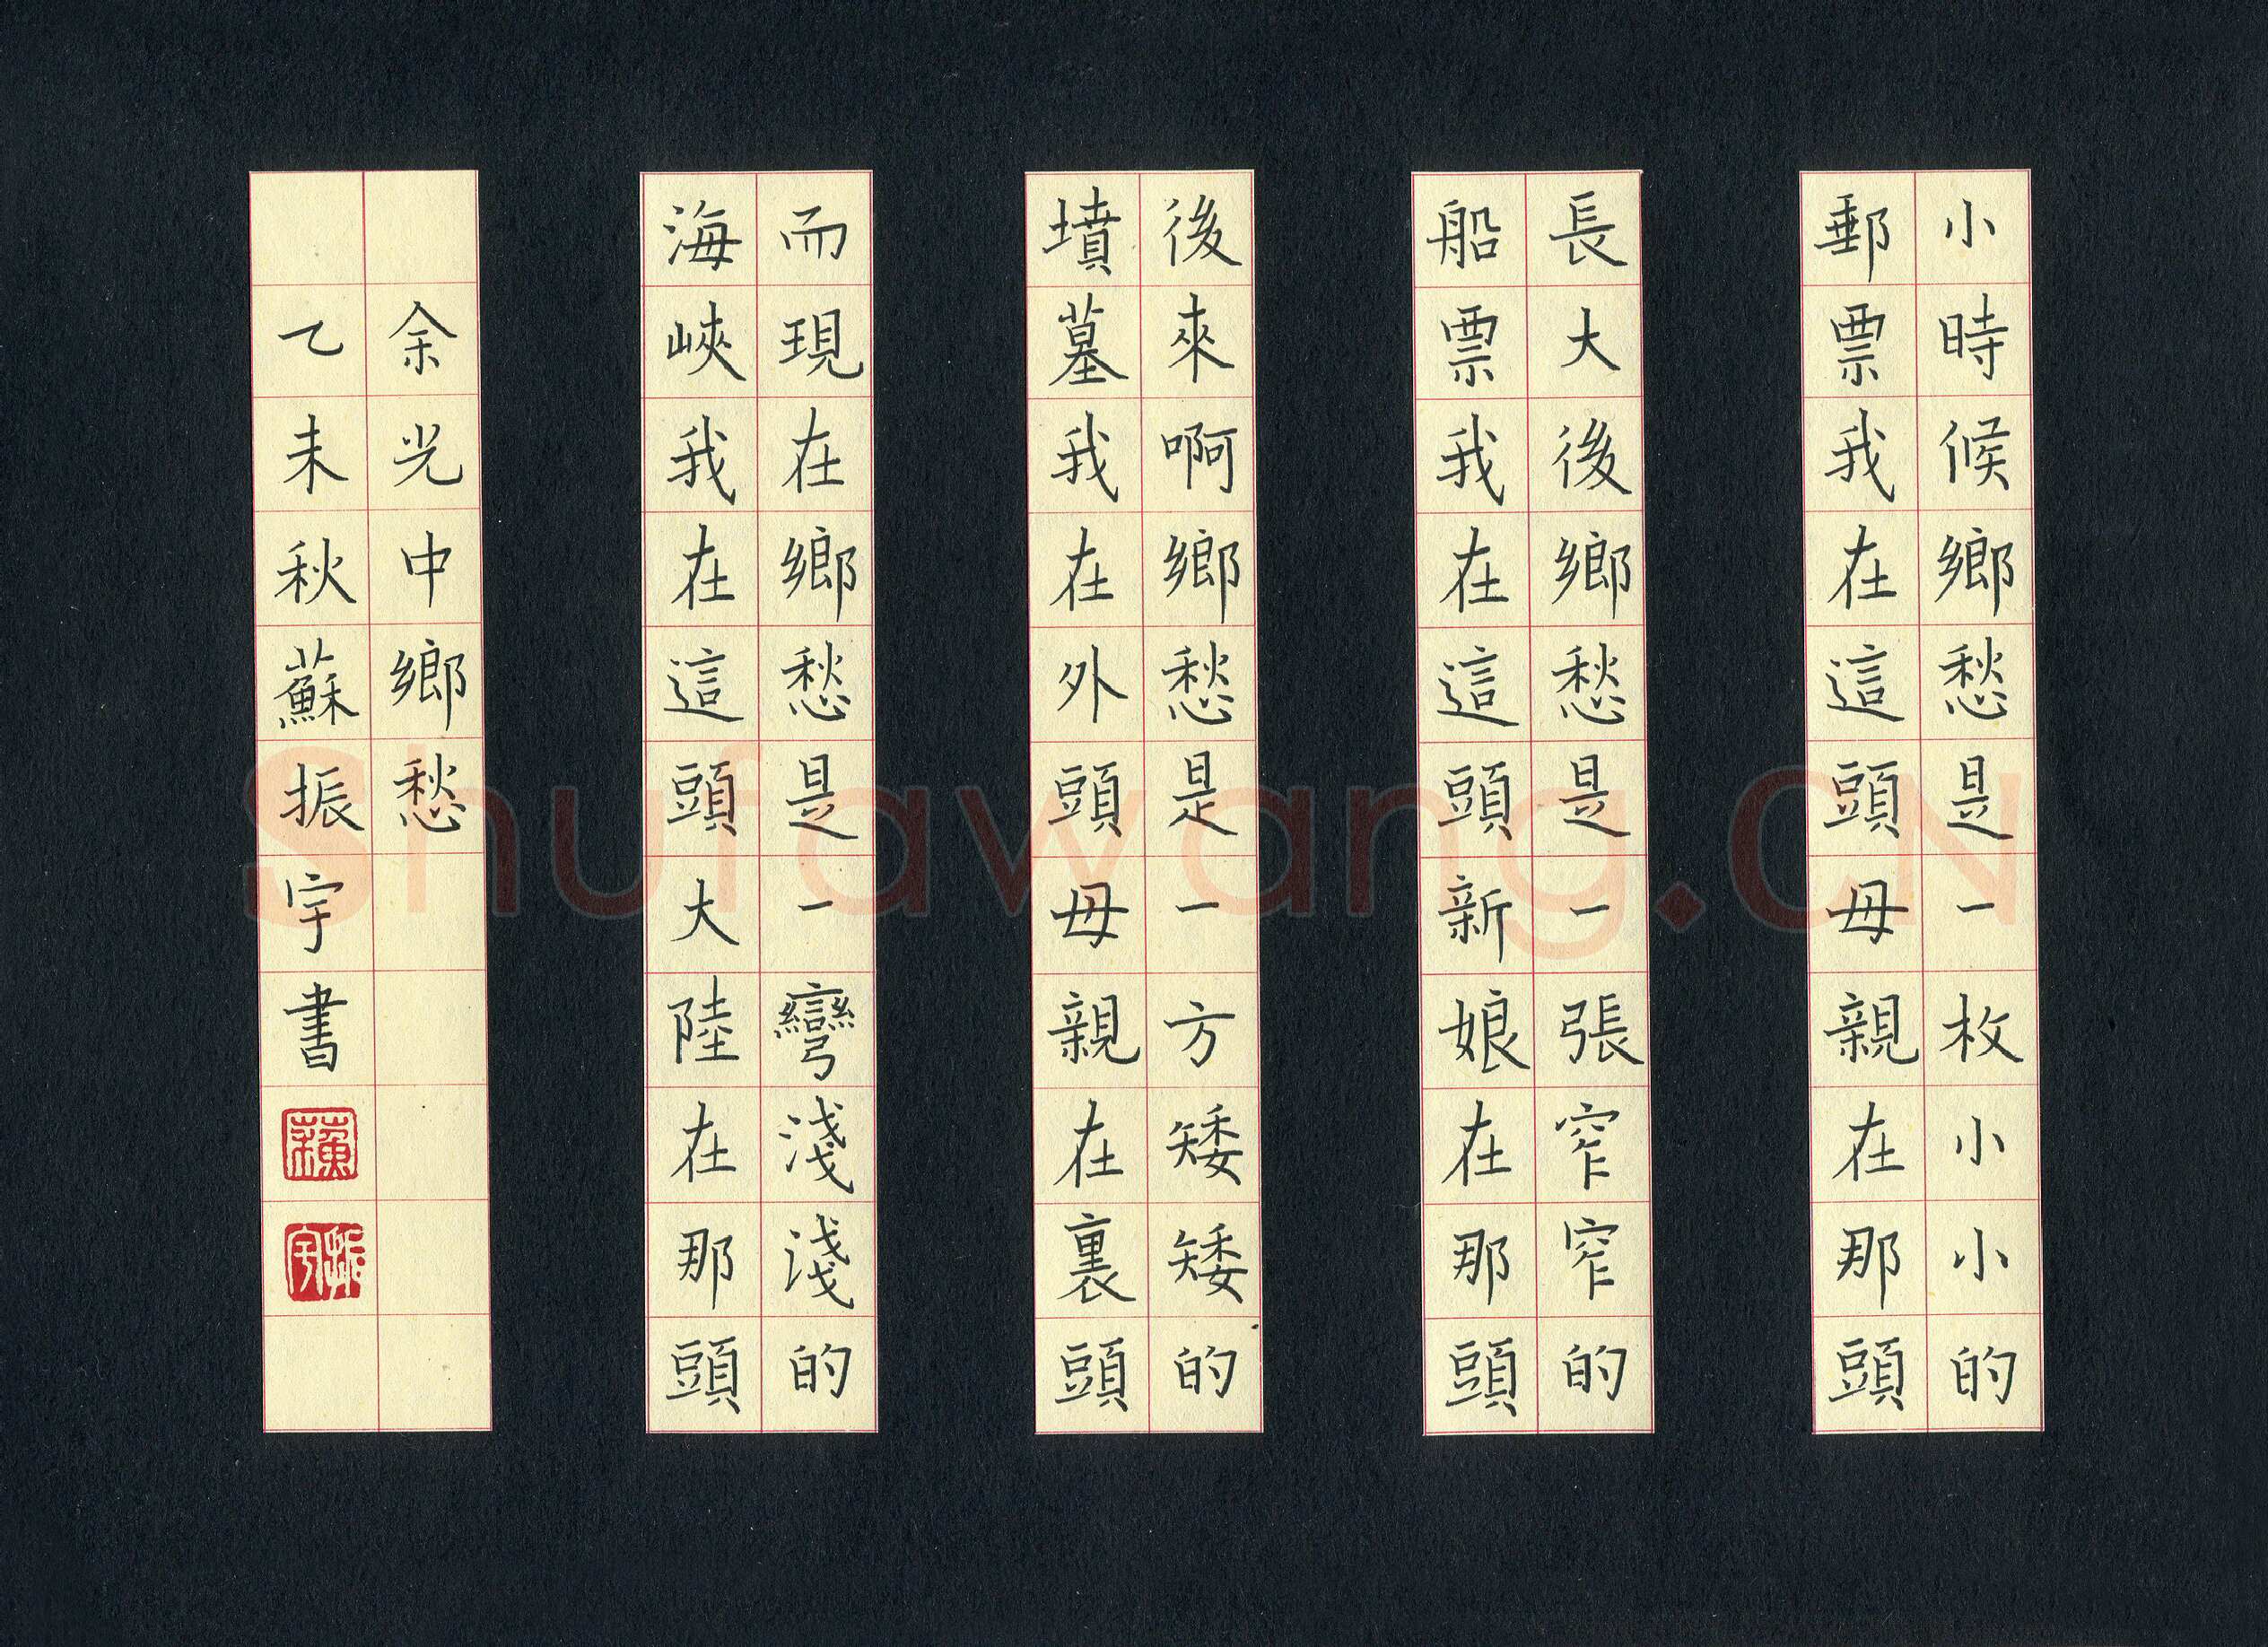 小時候鄉愁是一枚小小的
郵票我在這頭母親在那頭
長大後鄉愁是一張窄窄的
船票我在這頭新娘在那頭
後來啊鄉愁是一方矮矮的
墳墓我在外頭母親在裏頭
而現在鄉愁是一彎淺淺的
海峽我在這頭大陸在那頭
余光中鄉愁
乙未秋蘇振宇書
蘇
振宇
Shufawang.CN